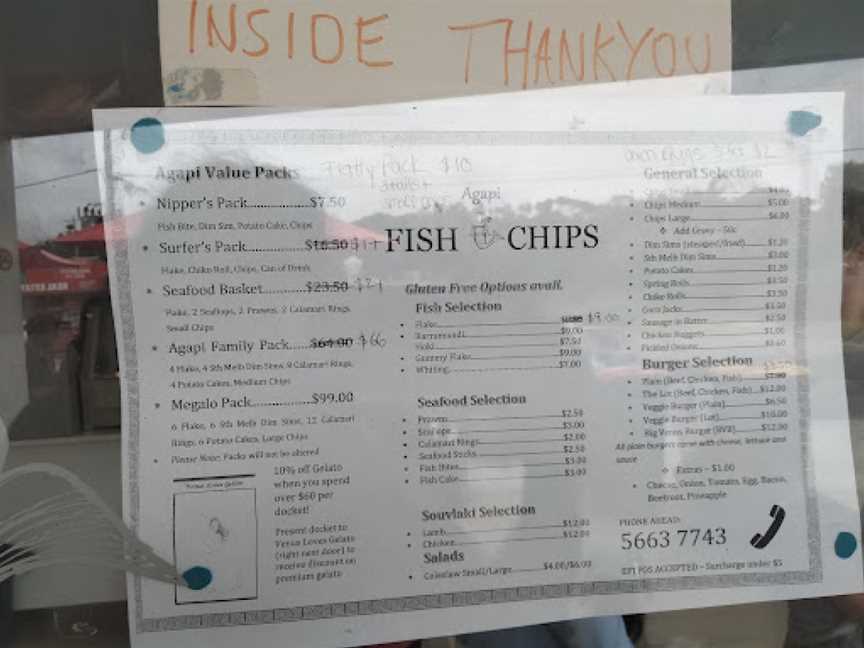 INSIDE THANKYOU
Agapi Value Packs
Nipper's Pack..............$7.50
Fish Bite, Dim Sim, Potato Cake, Chips
Surfer's Pack..............$16.50
Flake, Chiko Roll, Chips, Can of Drink
Seafood Basket..............$23.50
Flake, 2 Scallops, 2 Prawns, 2 Calamari Rings,
Small Chips
Agapi Family Pack.....$64.00 $66
4 Flake, 4 Sth Melb Dim Sims, 8 Calamari Rings,
4 Potato Cakes, Medium Chips
Megalo Pack..............$99.00
6 Flake, 6 Sth Melb Dim Sims, 12 Calamari
Rings, 6 Potato Cakes, Large Chips
Please Note: Packs will not be altered
10% off Gelato
when you spend
over $60 per
docket!
Present docket to
Venus Loves Gelato
(right next door) to
receive discount on
premium gelato
Pack $10
Agapi
FISH CHIPS
Gluten Free Options avail.
Fish Selection
Flake $9.00
Barramundi $9.00
$7.50
Gummy Flake $9.00
Whiting $7.00
Seafood Selection
Prawns $2.50
Scallops $3.00
Calamari Rings $2.00
Seafood Sticks $2.50
Fish Bites $3.00
Fish Cake $3.00
Souvlaki Selection
Lamb $12.00
Chicken $12.00
Salads
Coleslaw Small/Large $4.00/$6.00
General Selection
Chips Medium $5.00
Chips Large $6.00
Add Gravy – 50c
Dim Sims (steamed/fried) $1.20
Sth Melb Dim Sims $3.00
Potato Cakes $1.20
Spring Rolls $3.50
Chiko Rolls $3.50
Corn Jacks $3.50
Sausage in Batter $2.50
Chicken Nuggets $1.00
Pickled Onions
Burger Selection
Plain (Beef, Chicken, Fish)
The Lot (Beef, Chicken, Fish) $12.00
Veggie Burger (Plain) $6.50
Veggie Burger (Lot) $10.00
Big Venus Burger $12.00
All plain burgers come with cheese, lettuce and
sauce
Extras – $1.00
Cheese, Onion, Tomato, Egg, Bacon,
Beetroot, Pineapple
PHONE AHEAD:
5663 7743
EFTPOS ACCEPTED – Surcharge under $5